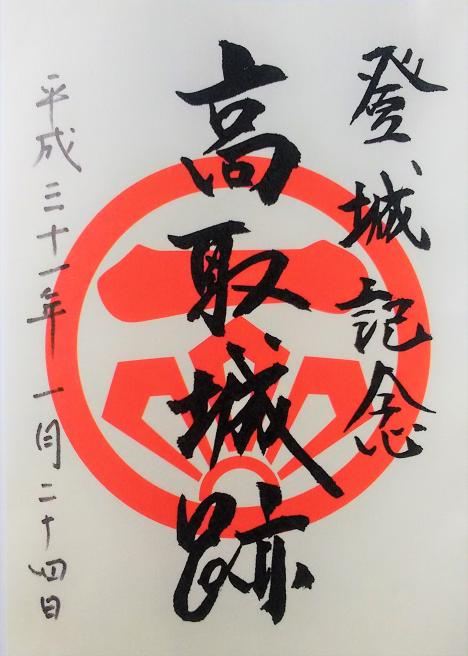 登城記念
高取城跡
平成三十一年一月二十四日